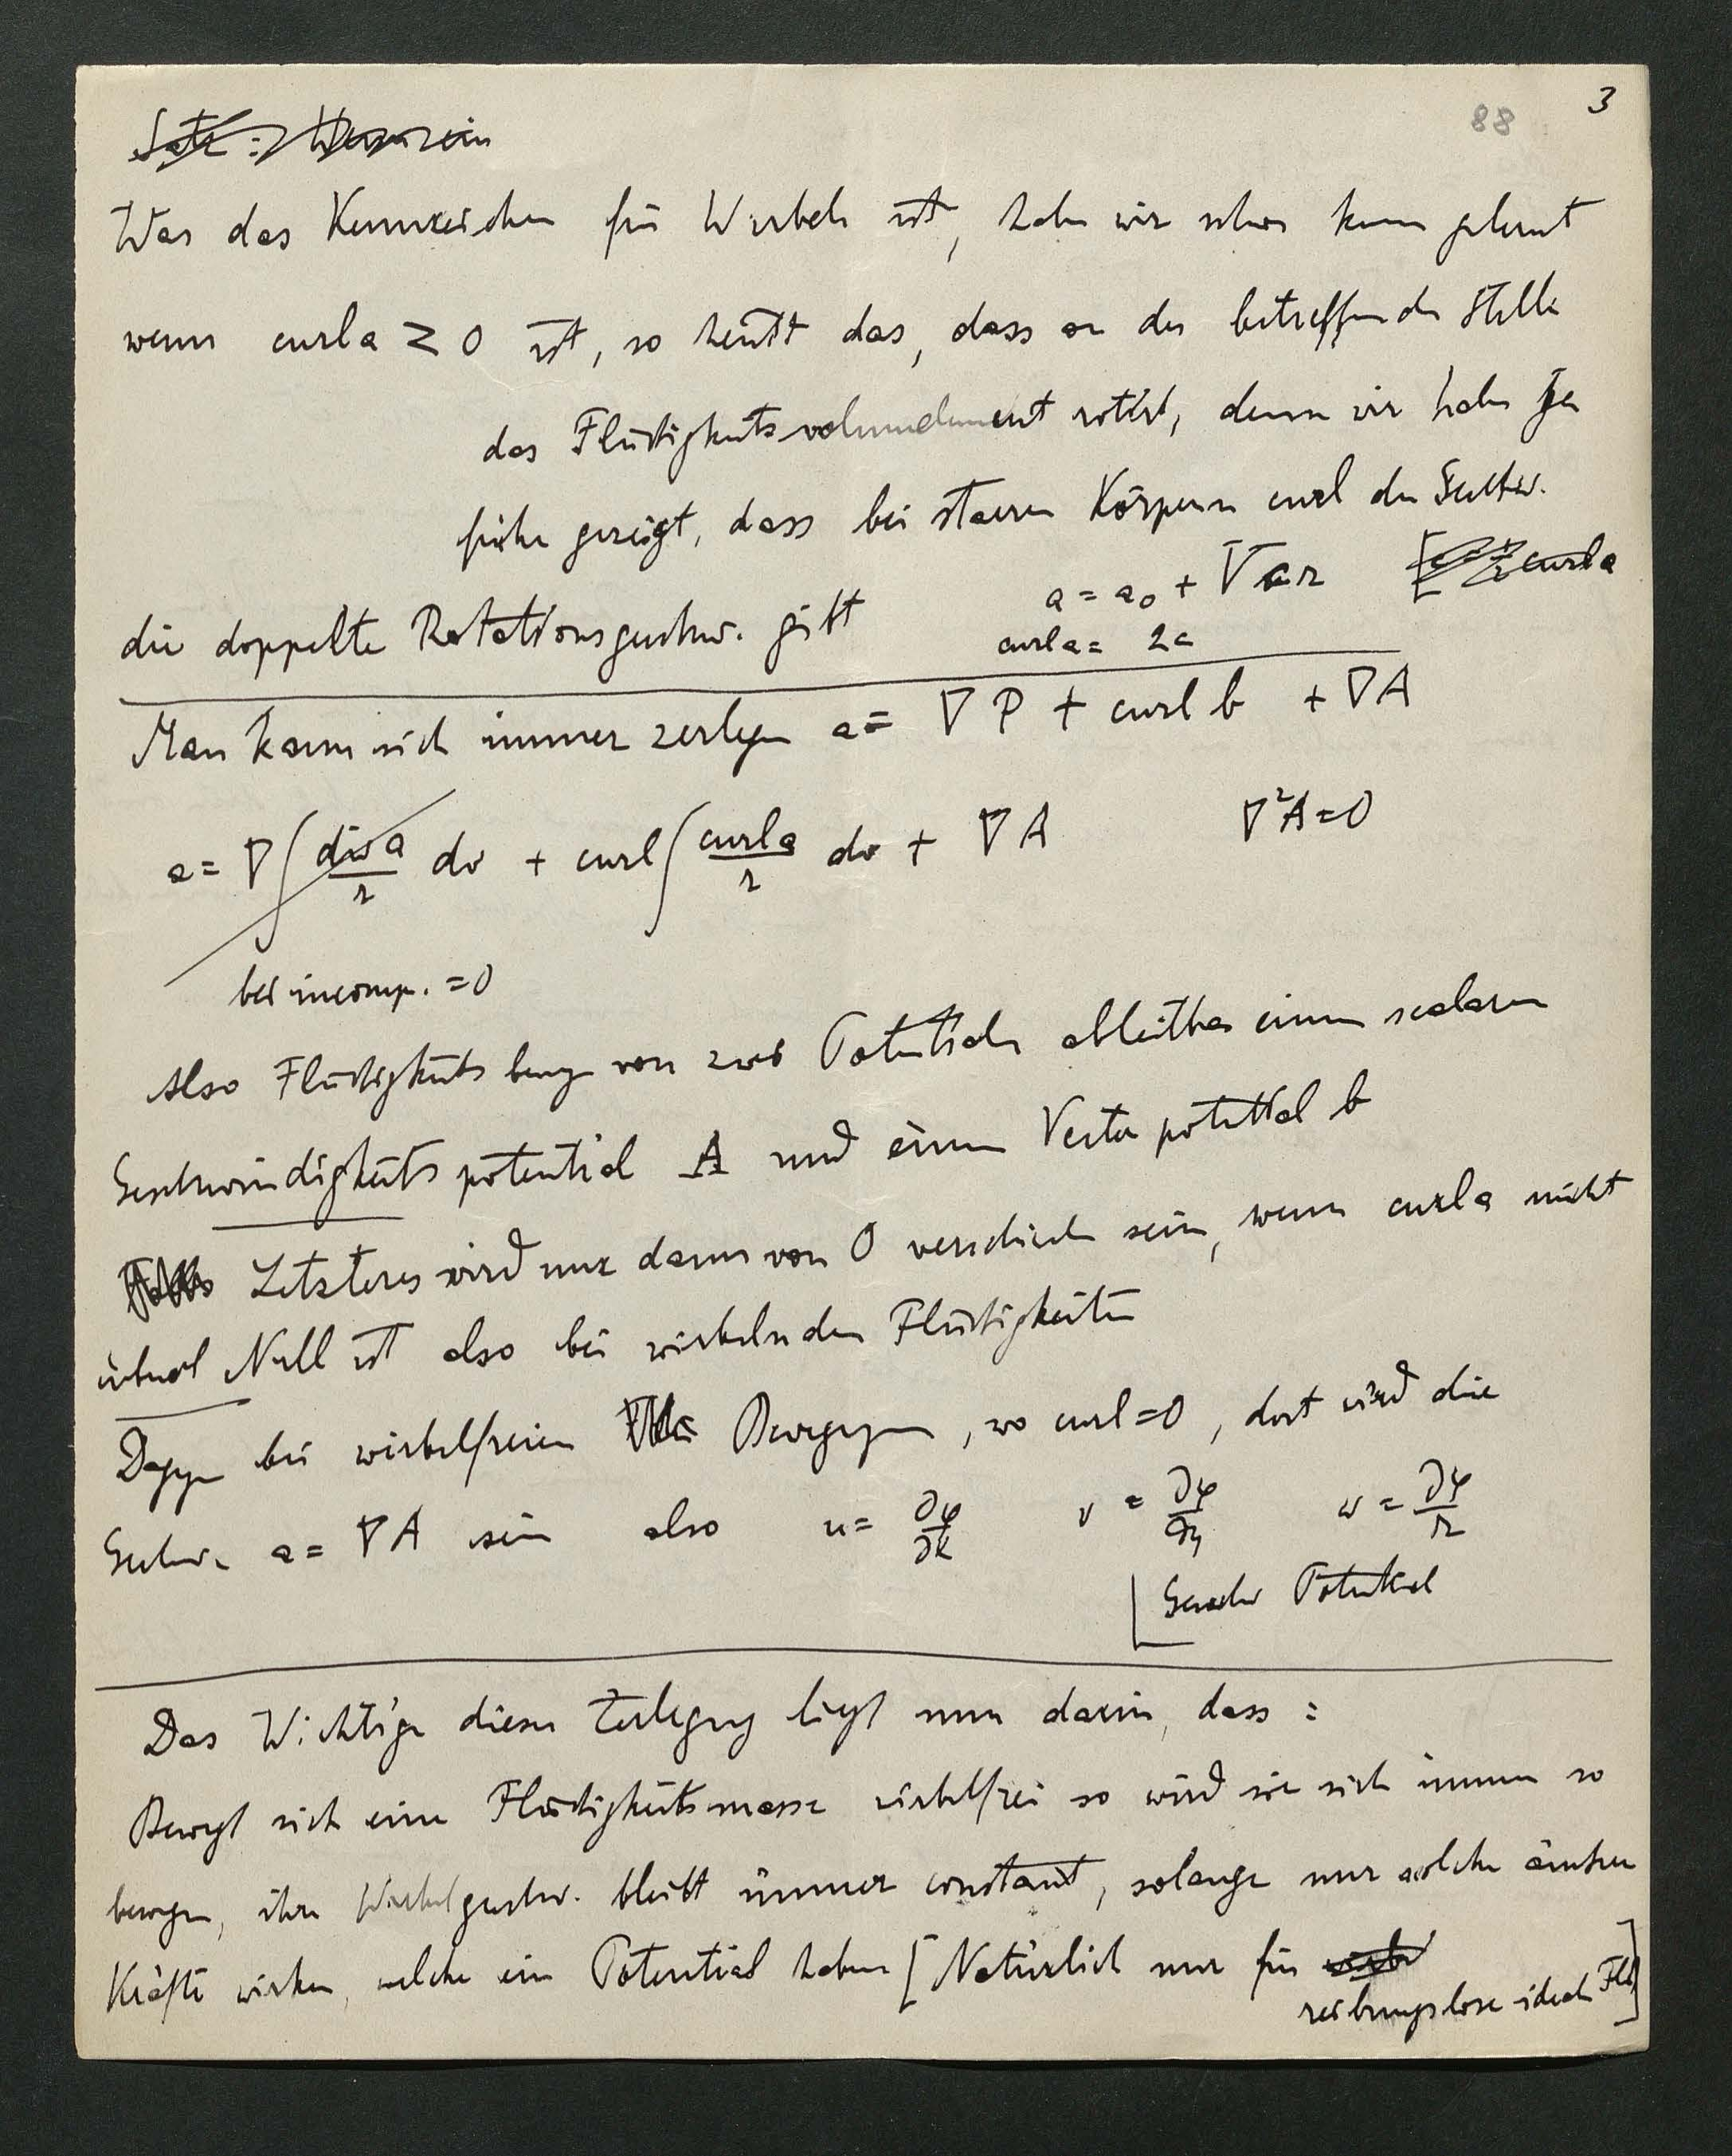 88 3
Satz: Wenn ein
Was das Kennzeichen für Wirbeln ist, haben wir schon kennen gelernt
wenn curl a ≷ 0 ist, so heisst das, dass an der betreffenden Stelle
das Flüssigkeitsvolumelement rotirt, denn wir haben ja
früher gezeigt, dass bei starren Körpern curl der Geschw.
die doppelte Rotationsgeschw. gibt
a = a₀ + V c r
curl a
curl a = 2c
Man kann sich immer zerlegen a = ∇P + curl b + ∇A
a = ∇∫ div a / r dv + curl∫ curl a / r dv + ∇A ∇²A = 0
bei incomp. = 0
Also Flüssigkeitsbeweg von zwei Potentialen ableitbar einem scalaren
Geschwindigkeitspotential A und einem Vectorpotential b
Falls Letzteres wird nur dann von 0 verschieden sein, wenn curl a nicht
überall Null ist also bei wirbelnden Flüssigkeiten
Dagegen bei wirbelfreien Bewegungen, wo curl = 0, dort wird die
Geschw. a = ∇A sein also u = ∂φ/∂x v = ∂φ/∂y w = ∂φ/∂z
Geschw Potential
Das Wichtige dieser Zerlegung liegt nun darin, dass :
Bewegt sich eine Flüssigkeitsmasse wirbelfrei so wird sie sich immer so
bewegen, ihre Wirbelgeschw. bleibt immer constant, solange nur solche äussere
Kräfte wirken, welche ein Potential haben [Natürlich nur für
reibungslose ideale Fl.]